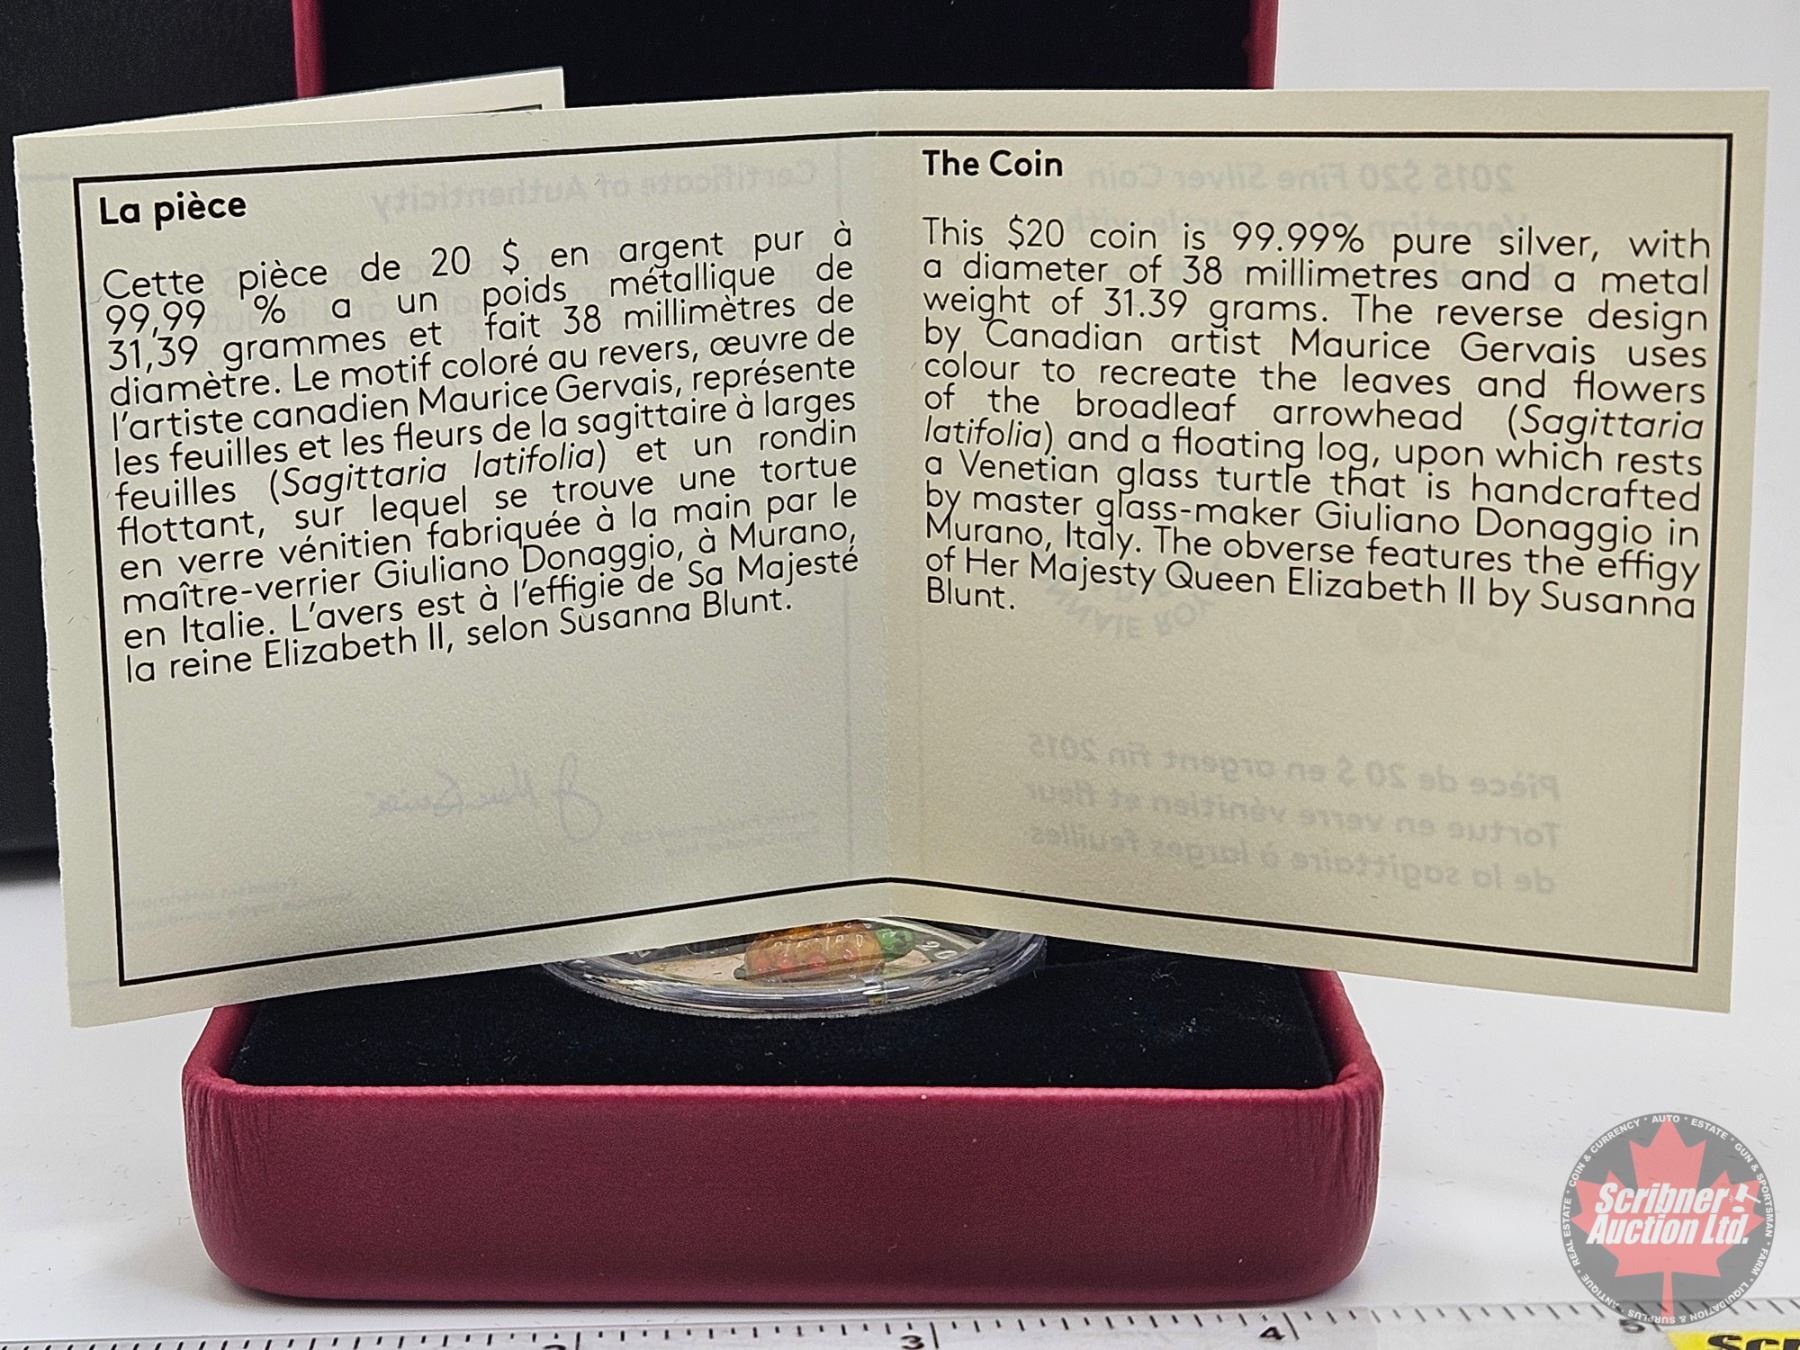 La pièce
Cette pièce de 20 $ en argent pur à
99,99 % a un poids métallique de
31,39 grammes et fait 38 millimètres de
diamètre. Le motif coloré au revers, œuvre de
l'artiste canadien Maurice Gervais, représente
les feuilles et les fleurs de la sagittaire à larges
feuilles (Sagittaria latifolia) et un rondin
flottant, sur lequel se trouve une tortue
en verre vénitien fabriquée à la main par le
maître-verrier Giuliano Donaggio, à Murano,
en Italie. L'avers est à l'effigie de Sa Majesté
la reine Elizabeth II, selon Susanna Blunt.
The Coin
This $20 coin is 99.99% pure silver, with
a diameter of 38 millimetres and a metal
weight of 31.39 grams. The reverse design
by Canadian artist Maurice Gervais uses
colour to recreate the leaves and flowers
of the broadleaf arrowhead (Sagittaria
latifolia) and a floating log, upon which rests
a Venetian glass turtle that is handcrafted
by master glass-maker Giuliano Donaggio in
Murano, Italy. The obverse features the effigy
of Her Majesty Queen Elizabeth II by Susanna
Blunt.
Certificate of Authenticity
2015 $20 Fine Silver Coin
Pièce de 20 $ en argent fin 2015
Tortue en verre vénitien et fleur
de la sagittaire à larges feuilles
20
COIN & CURRENCY * AUTO * ESTATE * GUN & SPORTSMAN * FARM * LIQUIDATION & SURPLUS * ANTIQUE * REAL ESTATE
Scribner
Auction Ltd.
3 4 5